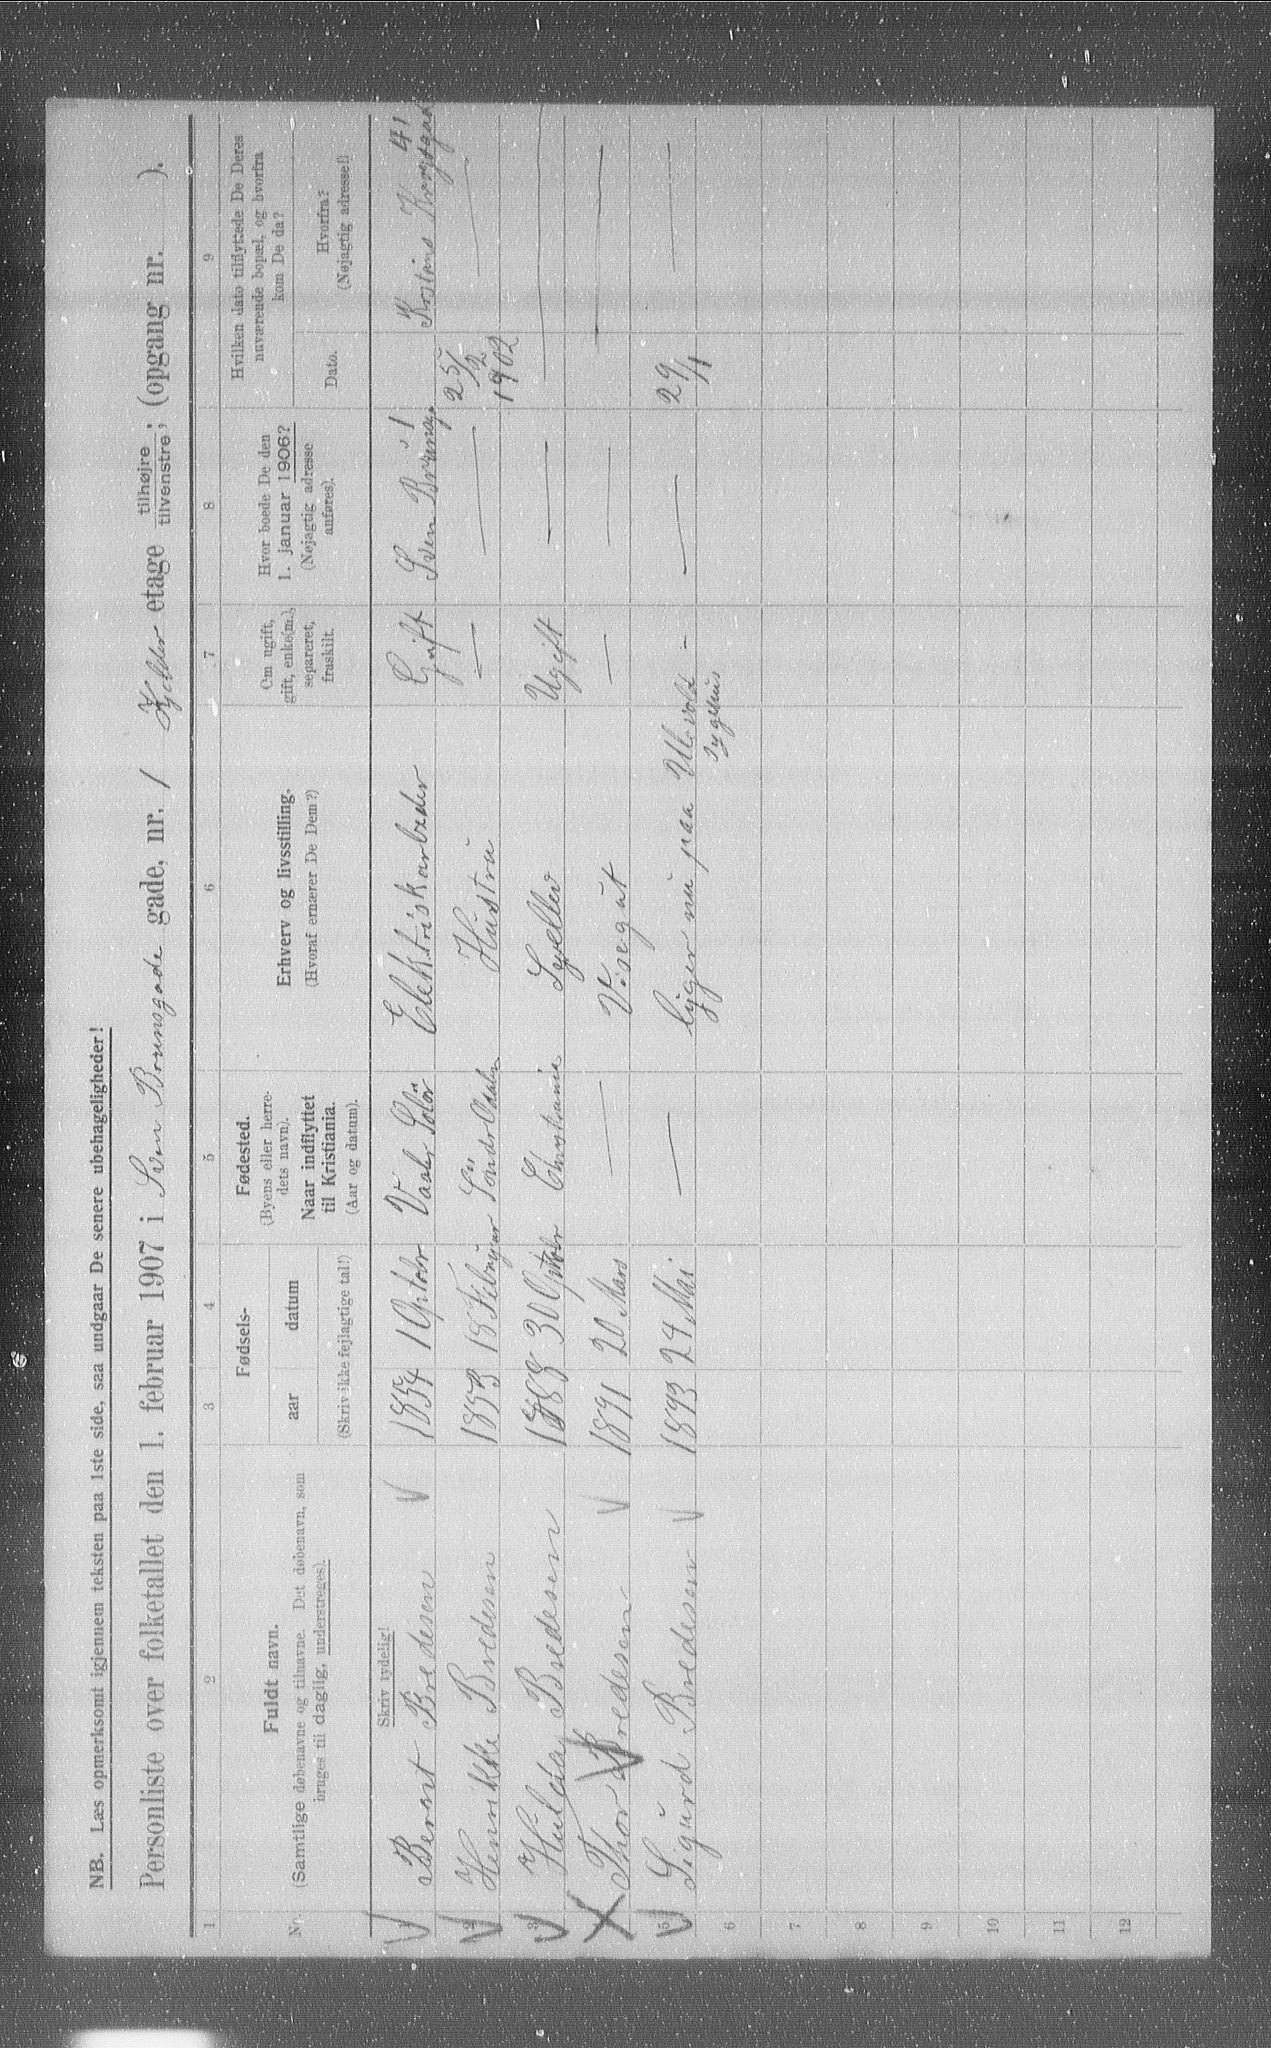 NB. Læs opmerksomt igjennem teksten paa 1ste side, saa undgaar De senere ubehageligheder!
Personliste over folketallet den 1. februar 1907 i Sven Brunsgade gade, nr. 1 Kjelder etage tilhøjre tilvenstre; (opgang nr. ).
1 2 3 4 5 6 7 8 9
No.
Fuldt navn.
(Samtlige døbenavne og tilnavne. Det døbenavn, som
bruges til daglig, understreges).
Fødsels-
aar datum
(Skriv ikke fejlagtige tal!)
Fødested.
(Byens eller herre-
dets navn).
Naar indflyttet
til Kristiania.
(Aar og datum).
Erhverv og livsstilling.
(Hvoraf ernærer De Dem?)
Om ugift,
gift, enke(m.),
separeret,
fraskilt.
Hvor boede De den
1. januar 1906?
(Nøjagtig adresse
anføres).
Hvilken dato tilflyttede De Deres
nuværende bopæl, og hvorfra
kom De da?
Dato.
Hvorfra?
(Nøjagtig adresse!)
Skriv tydelig!
1 Berant Bredesen 1854 1 Optobr Vaaler Solör Elektriskarbeder Gift Sven Brunsg. 1 25/2 1902 41
2 Henrikke Bredesen 1853 18 Februar Söndr Odalen Hustru — — —
3 Hulda Bredesen 1888 30 Christiania Ugift — —
4 Thor Bredesen 1891 20 Mars — Visegut — — —
5 Sigurd Bredesen 1893 24 Mai — ligger nu paa Ullevold sygehus - — 29/1 —
6
7
8
9
10
11
12